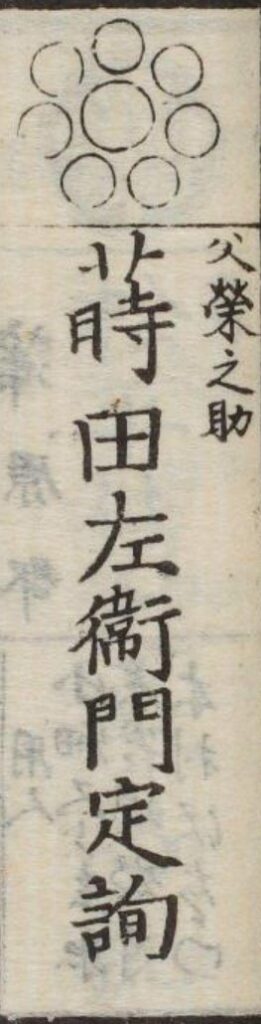 父榮之助
蒔田左衞門定詢